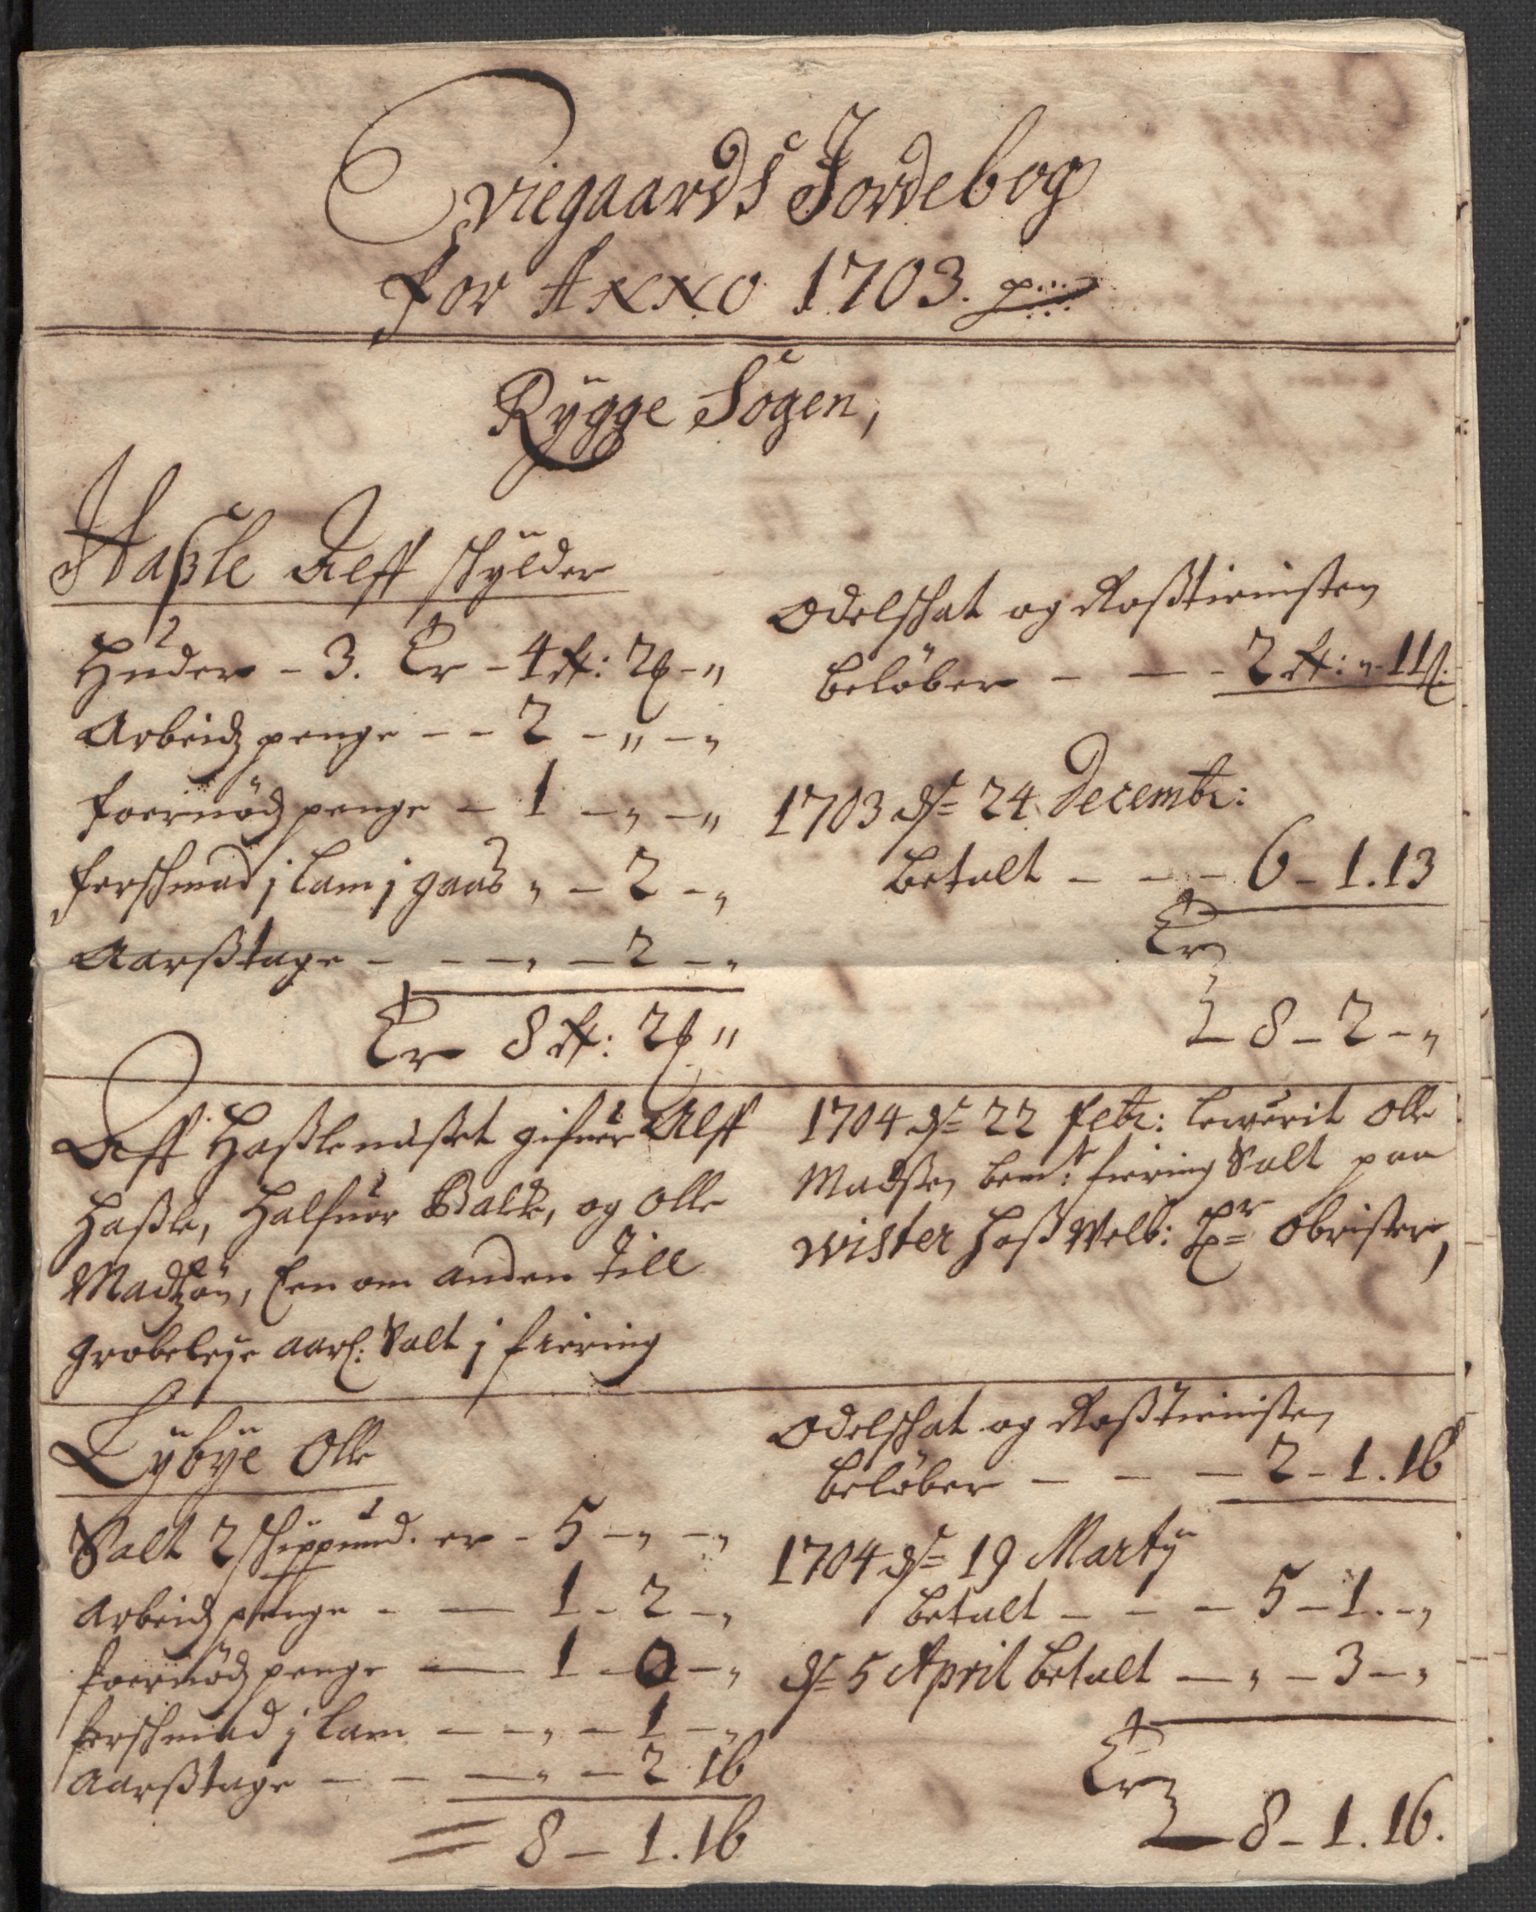 Evjegaards Jordebog
for Anno 1703.
Rygge Sogen,
Haßle Alff skylder
Huder - 3. Er - 4 rt: 2 ß - "
Arbeidz penge - - 2 - " - "
foernødz penge - 1 - " - "
ferschmad j lam j gaas " - 2 - "
Aarßtage - - - " - 2 - "
Er 8 rt: 2 ß "
Odelschat og Roßtienisten
beløber - - - 2 rt: " - 11 ß:
1703 d= 24 Decembr:
betalt - - - 6 - 1.13
Er
8 - 2 - "
Aff Haßlenußet gifuer Alff
Haßle, Halfuor Balke, og Olle
Madtzøn, Een om anden till
grobeleje aarl: Salt j fiering
1704 d= 22 Febr: lewerit Olle
Madsen bem: fiering Salt paa
wister hoß Welb: Hr= Obrister,
Lybye Olle
Salt 2 schippund. er - 5 - " - "
Arbeidz penge - - 1 - 2 - "
foernødz penge - 1 - 0 - "
ferschmad j lam - - " - 1 - "
Aarßtage - - - " - 2 16
= 8 - 1.16
Odelschat og Roßtienisten
beløber - - - 2 - 1.16
1704 d= 19 Marty
betalt - - - 5 - 1. - "
d= 5 April betalt - " - 3 - "
Er
8 - 1.16.